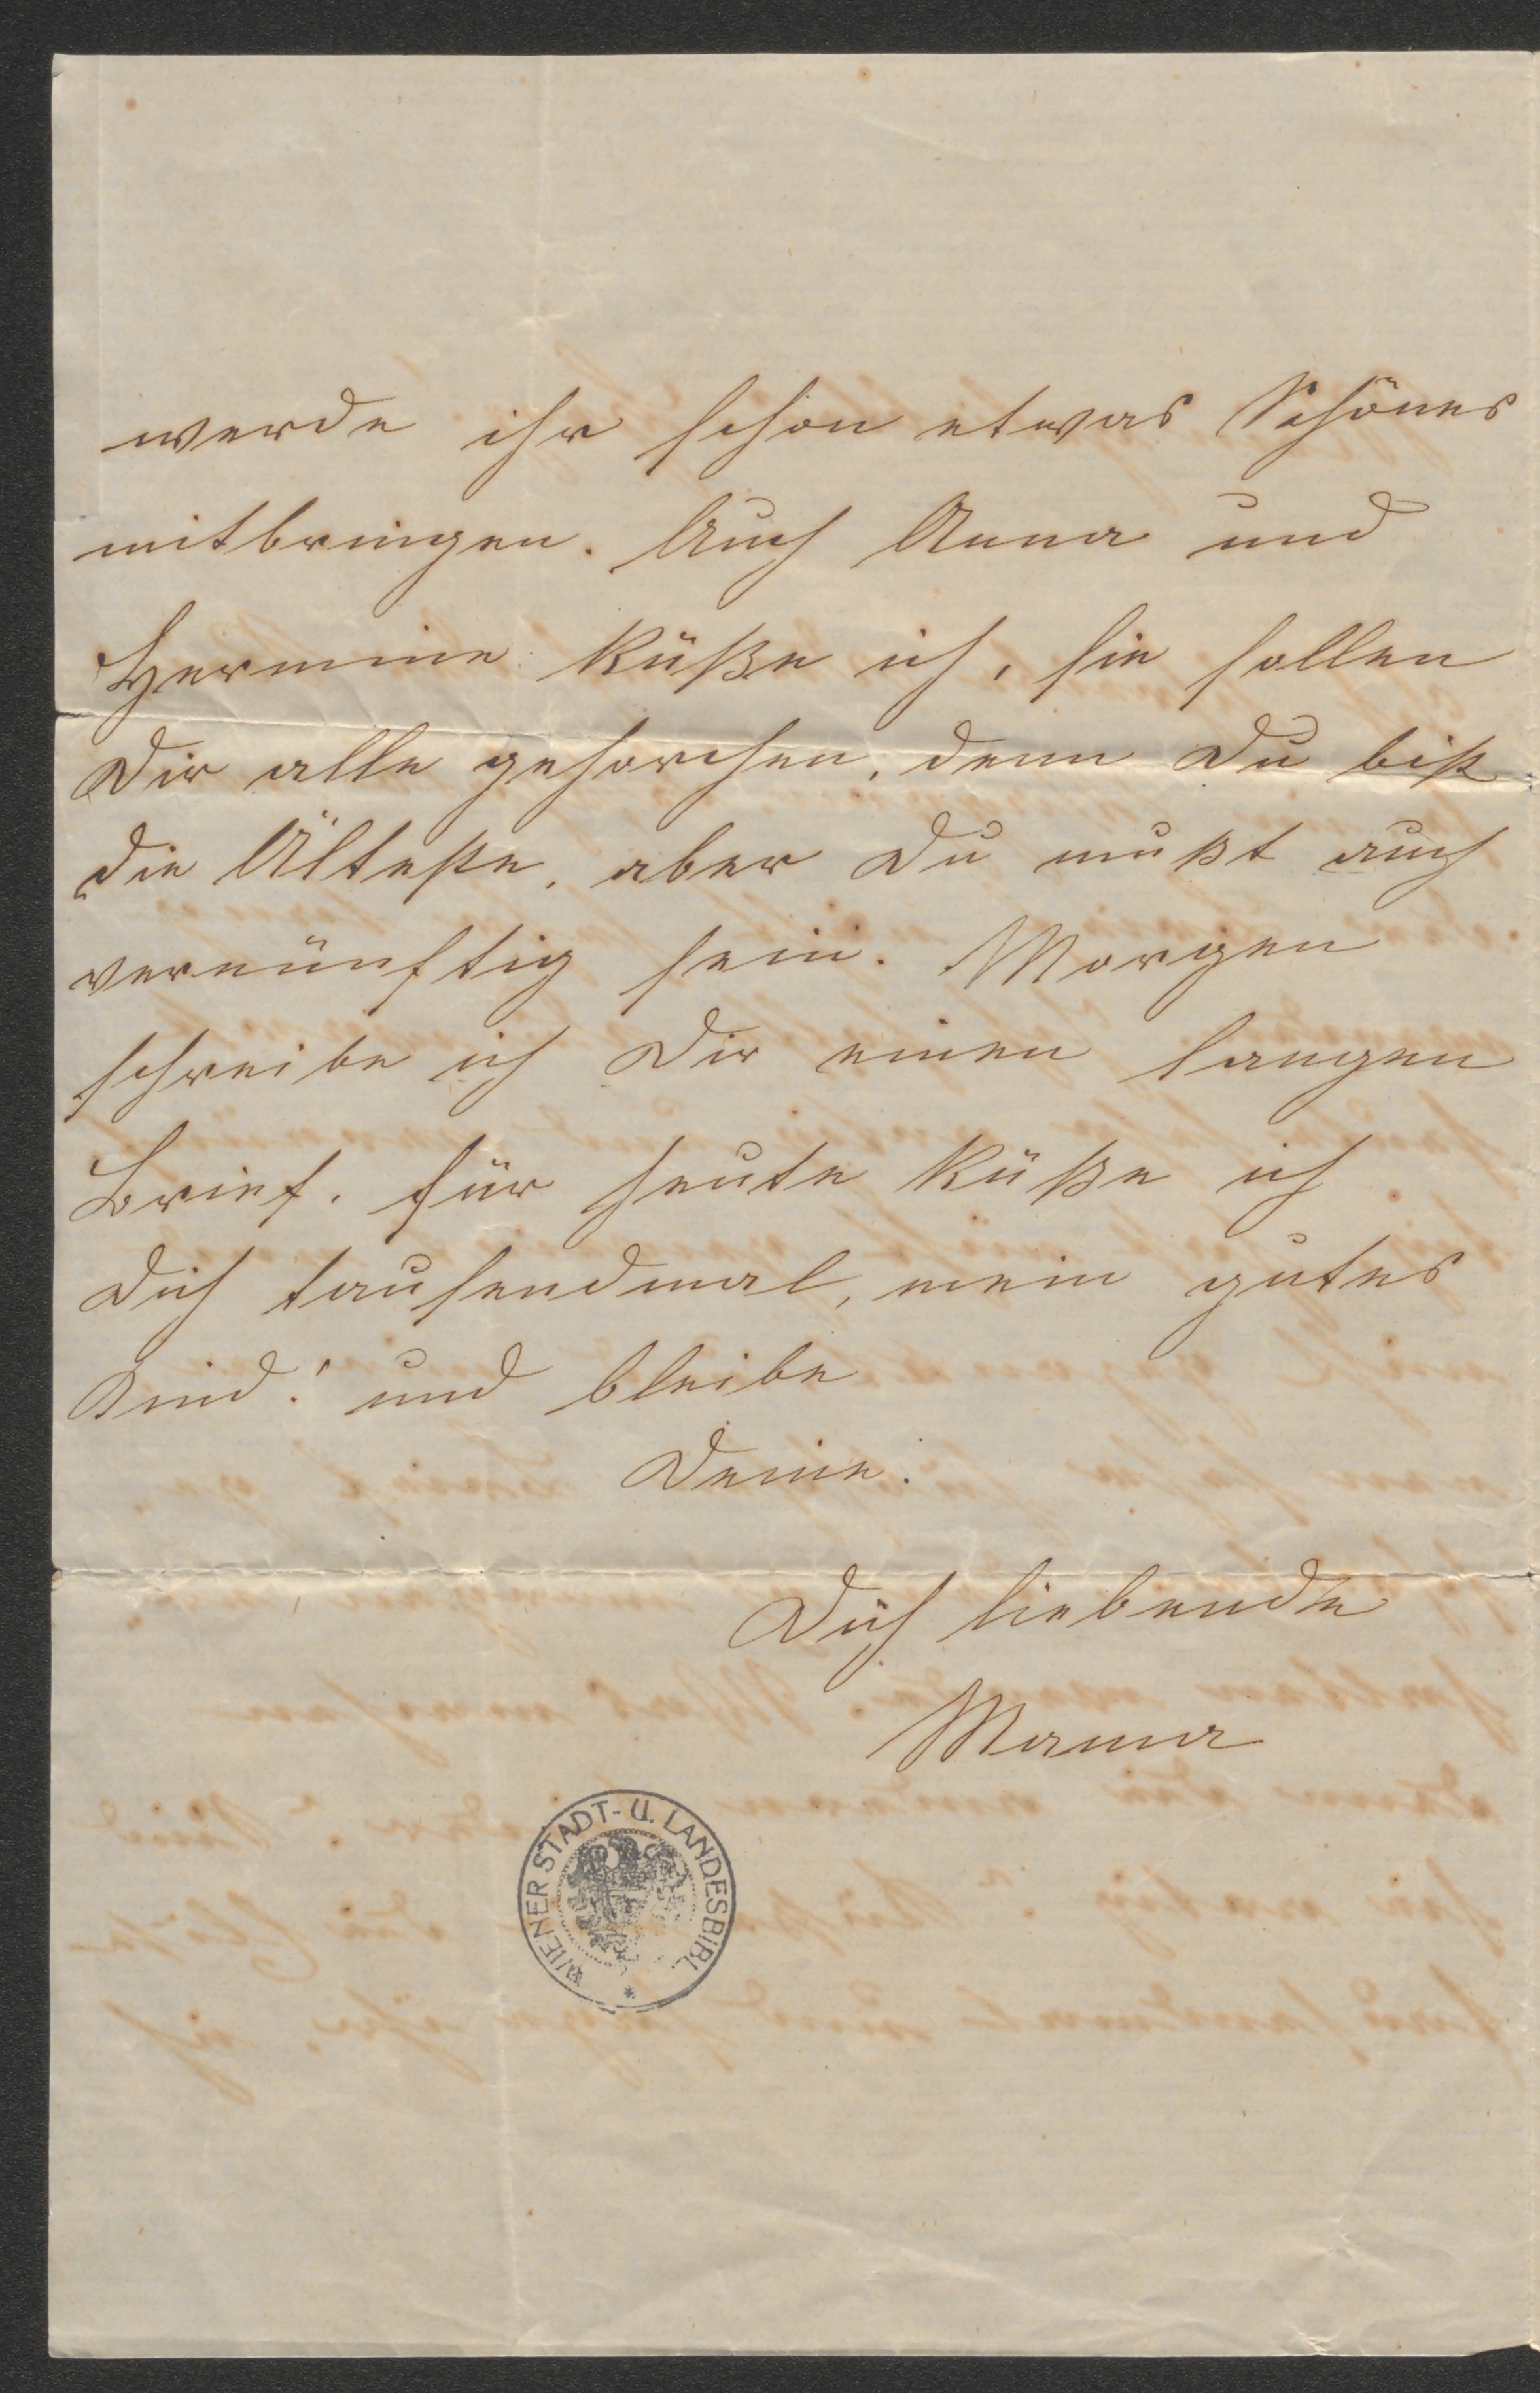 werde ihr schon etwas Schönes
mitbringen. Auch Anna und
Hermine küße ich, sie sollen
Dir alle gehorchen, denn Du bist
die Älteste, aber Du mußt auch
vernünftig sein. Morgen
schreibe ich Dir einen langen
Brief. Für heute küße ich
Dich tausendmal, mein gutes
Kind! und bleibe
Deine
Dich liebende
Mama
WIENER STADT- U. LANDESBIBL.